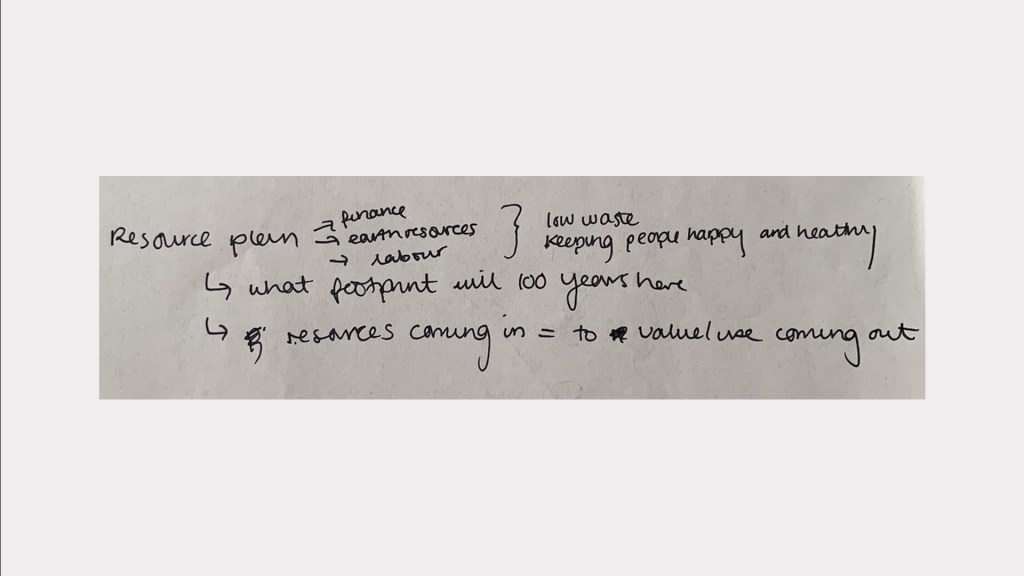 Resource plan → finance
→ earth resources
→ labour
} low waste
keeping people happy and healthy
↳ what footprint will 100 years have
↳ resources coming in = to value/use coming out